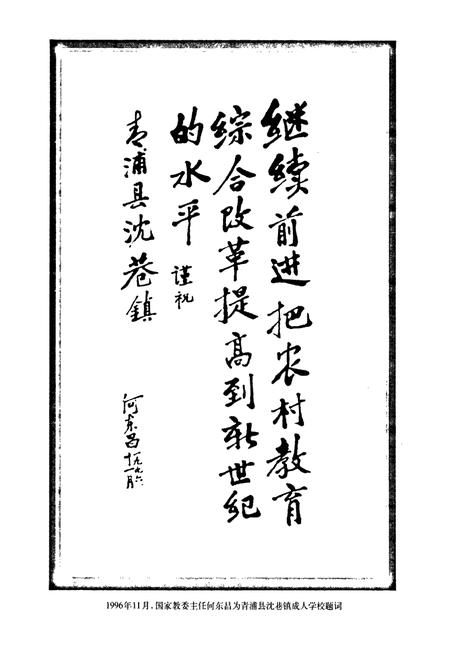 继续前进把农村教育
综合改革提高到新世纪
的水平 谨祝
青浦县沈巷镇
何东昌
一九九六
十一月
1996年11月,国家教委主任何东昌为青浦县沈巷镇成人学校题词